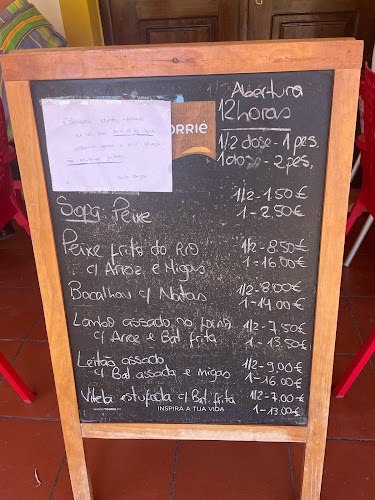 Abertura
12 horas
ORRIÉ
1/2 dose - 1 pes.
1 dose - 2 pes.
Sopa Peixe 1/2 - 1.50€
1 - 2.50€
Peixe frito do Rio 1/2 - 8.50€
c/ Arroz e Migas 1 - 16.00€
Bacalhau c/ Natas 1/2 - 8.00€
1 - 14.00€
Lombo assado no forno 1/2 - 7.50€
c/ Arroz e Bat. frita 1 - 13.50€
Leitão assado 1/2 - 9.00€
c/ Bat. assada e migas 1 - 16.00€
Vitela estufada c/ Bat. frita 1/2 - 7.00€
1 - 13.00€
INSPIRA A TUA VIDA